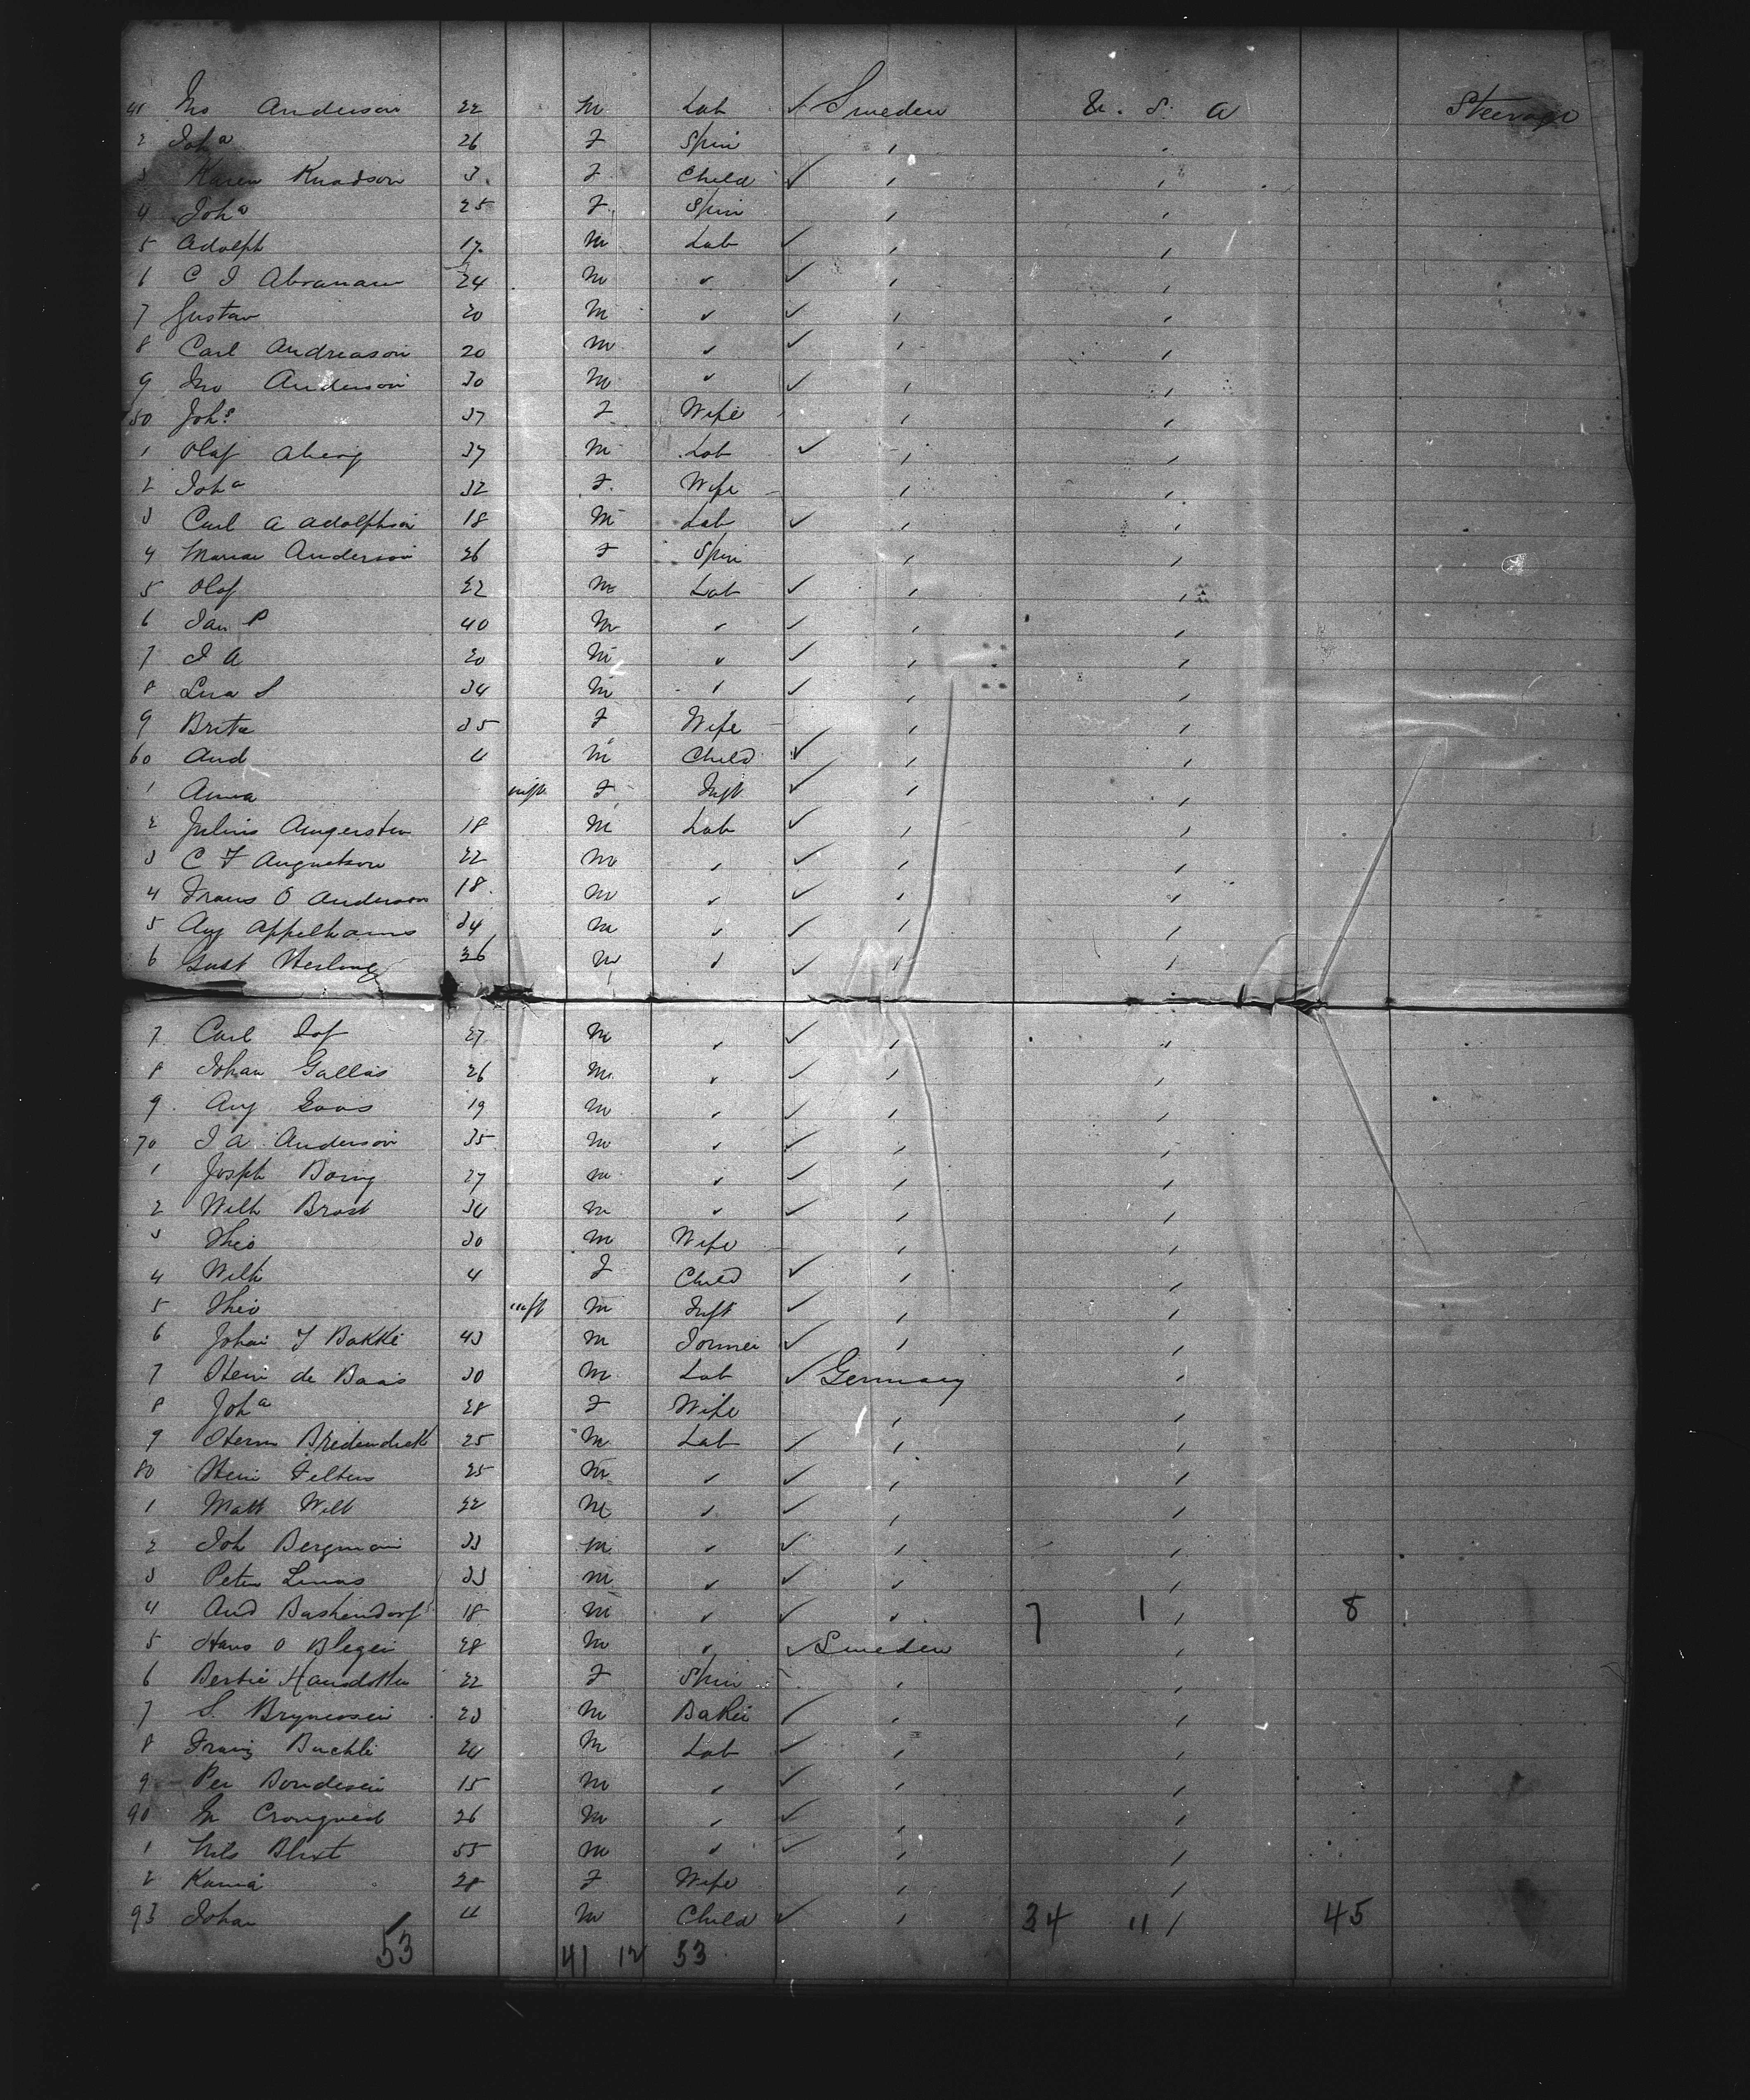 41 Jno Anderson 22 M Lab ✓ Sweden U. S. A Steerage
2 Joha 26 F Spin ,
3 Karen Knudson 3 F Child ✓ ,
4 Joha 25 F Spin ,
5 Adolph 17 M Lab ✓ ,
6 C J 24 M ✓ ,
7 Gustav 20 M ✓ ,
8 Carl Andreason 20 M ✓ ,
9 Jno Anderson 30 M ✓ ,
50 Joha 37 F Wife ,
1 Olaf 37 M Lab ✓ ,
2 Joha 32 F Wife ,
3 Carl A Adolphson 18 M Lab ✓ ,
4 Maria Anderson 26 F Spin ,
5 Olof 22 M Lab ✓ ,
6 Jan P 40 M ✓ ,
7 J A 20 M ✓ ,
8 34 M ✓ ,
9 Brita 35 F Wife ,
60 And 4 M Child ✓ ,
1 Anna inft F Inft ✓ ,
2 Julius 18 M Lab ✓ ,
3 C F Augustson 22 M ✓ ,
4 Frans O Anderson 18 M ✓ ,
5 Aug 34 M ✓ ,
6 Gust 26 M ✓ ,
7 Carl 27 M ✓ ,
8 Johan Gallas 26 M ✓ ,
9 Aug 19 M ✓ ,
70 J A Anderson 35 M ✓ ,
1 Josph 27 M ✓ ,
2 Wilh Brost 34 M ✓ ,
3 Theo 30 M Wife ,
4 Wilh 4 F Child ✓ ,
5 Theo inft M Inft ✓ ,
6 Johan Bakke 43 M ✓ ,
7 Henr de Baas 30 M Lab ✓ Germany ,
8 Joha 28 F Wife ,
9 Herm 25 M Lab ✓ ,
80 Henr 25 M ✓ ,
1 Matt Wilt 22 M ✓ ,
2 Joh Bergman 33 M ✓ ,
3 Peter 33 M ✓ ,
4 And 18 M ✓ 7 1 8
5 Hans O Blegen 28 M ✓ Sweden ,
6 22 F Spin ,
7 S. 23 M Baker ✓ ,
8 24 M Lab ✓ ,
9 Per Bondesen 15 M ✓ ,
90 26 M ✓ ,
1 Nils Blixt 55 M ✓ ,
2 28 F Wife ,
93 Johan 4 M Child ✓ , 34 11 45
53 41 12 53